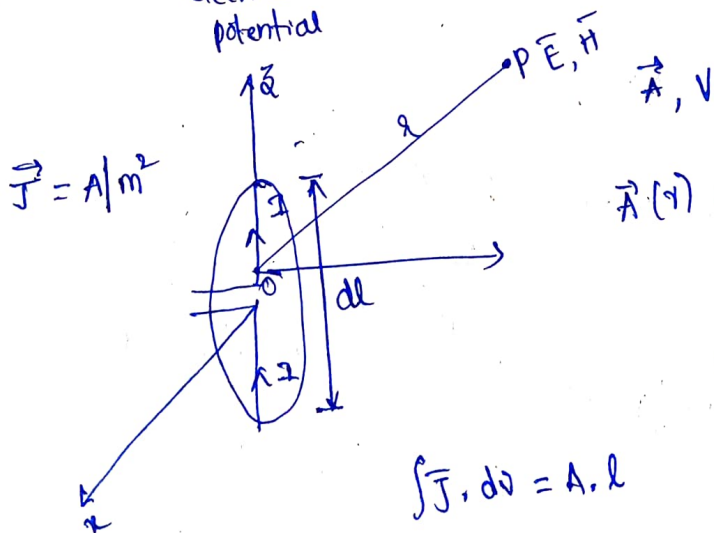 potential
P E̅, H̅
A⃗, V
J⃗ = A/m²
A⃗ (r)
I
O
dl
I
∫J̅. dv = A. l
x